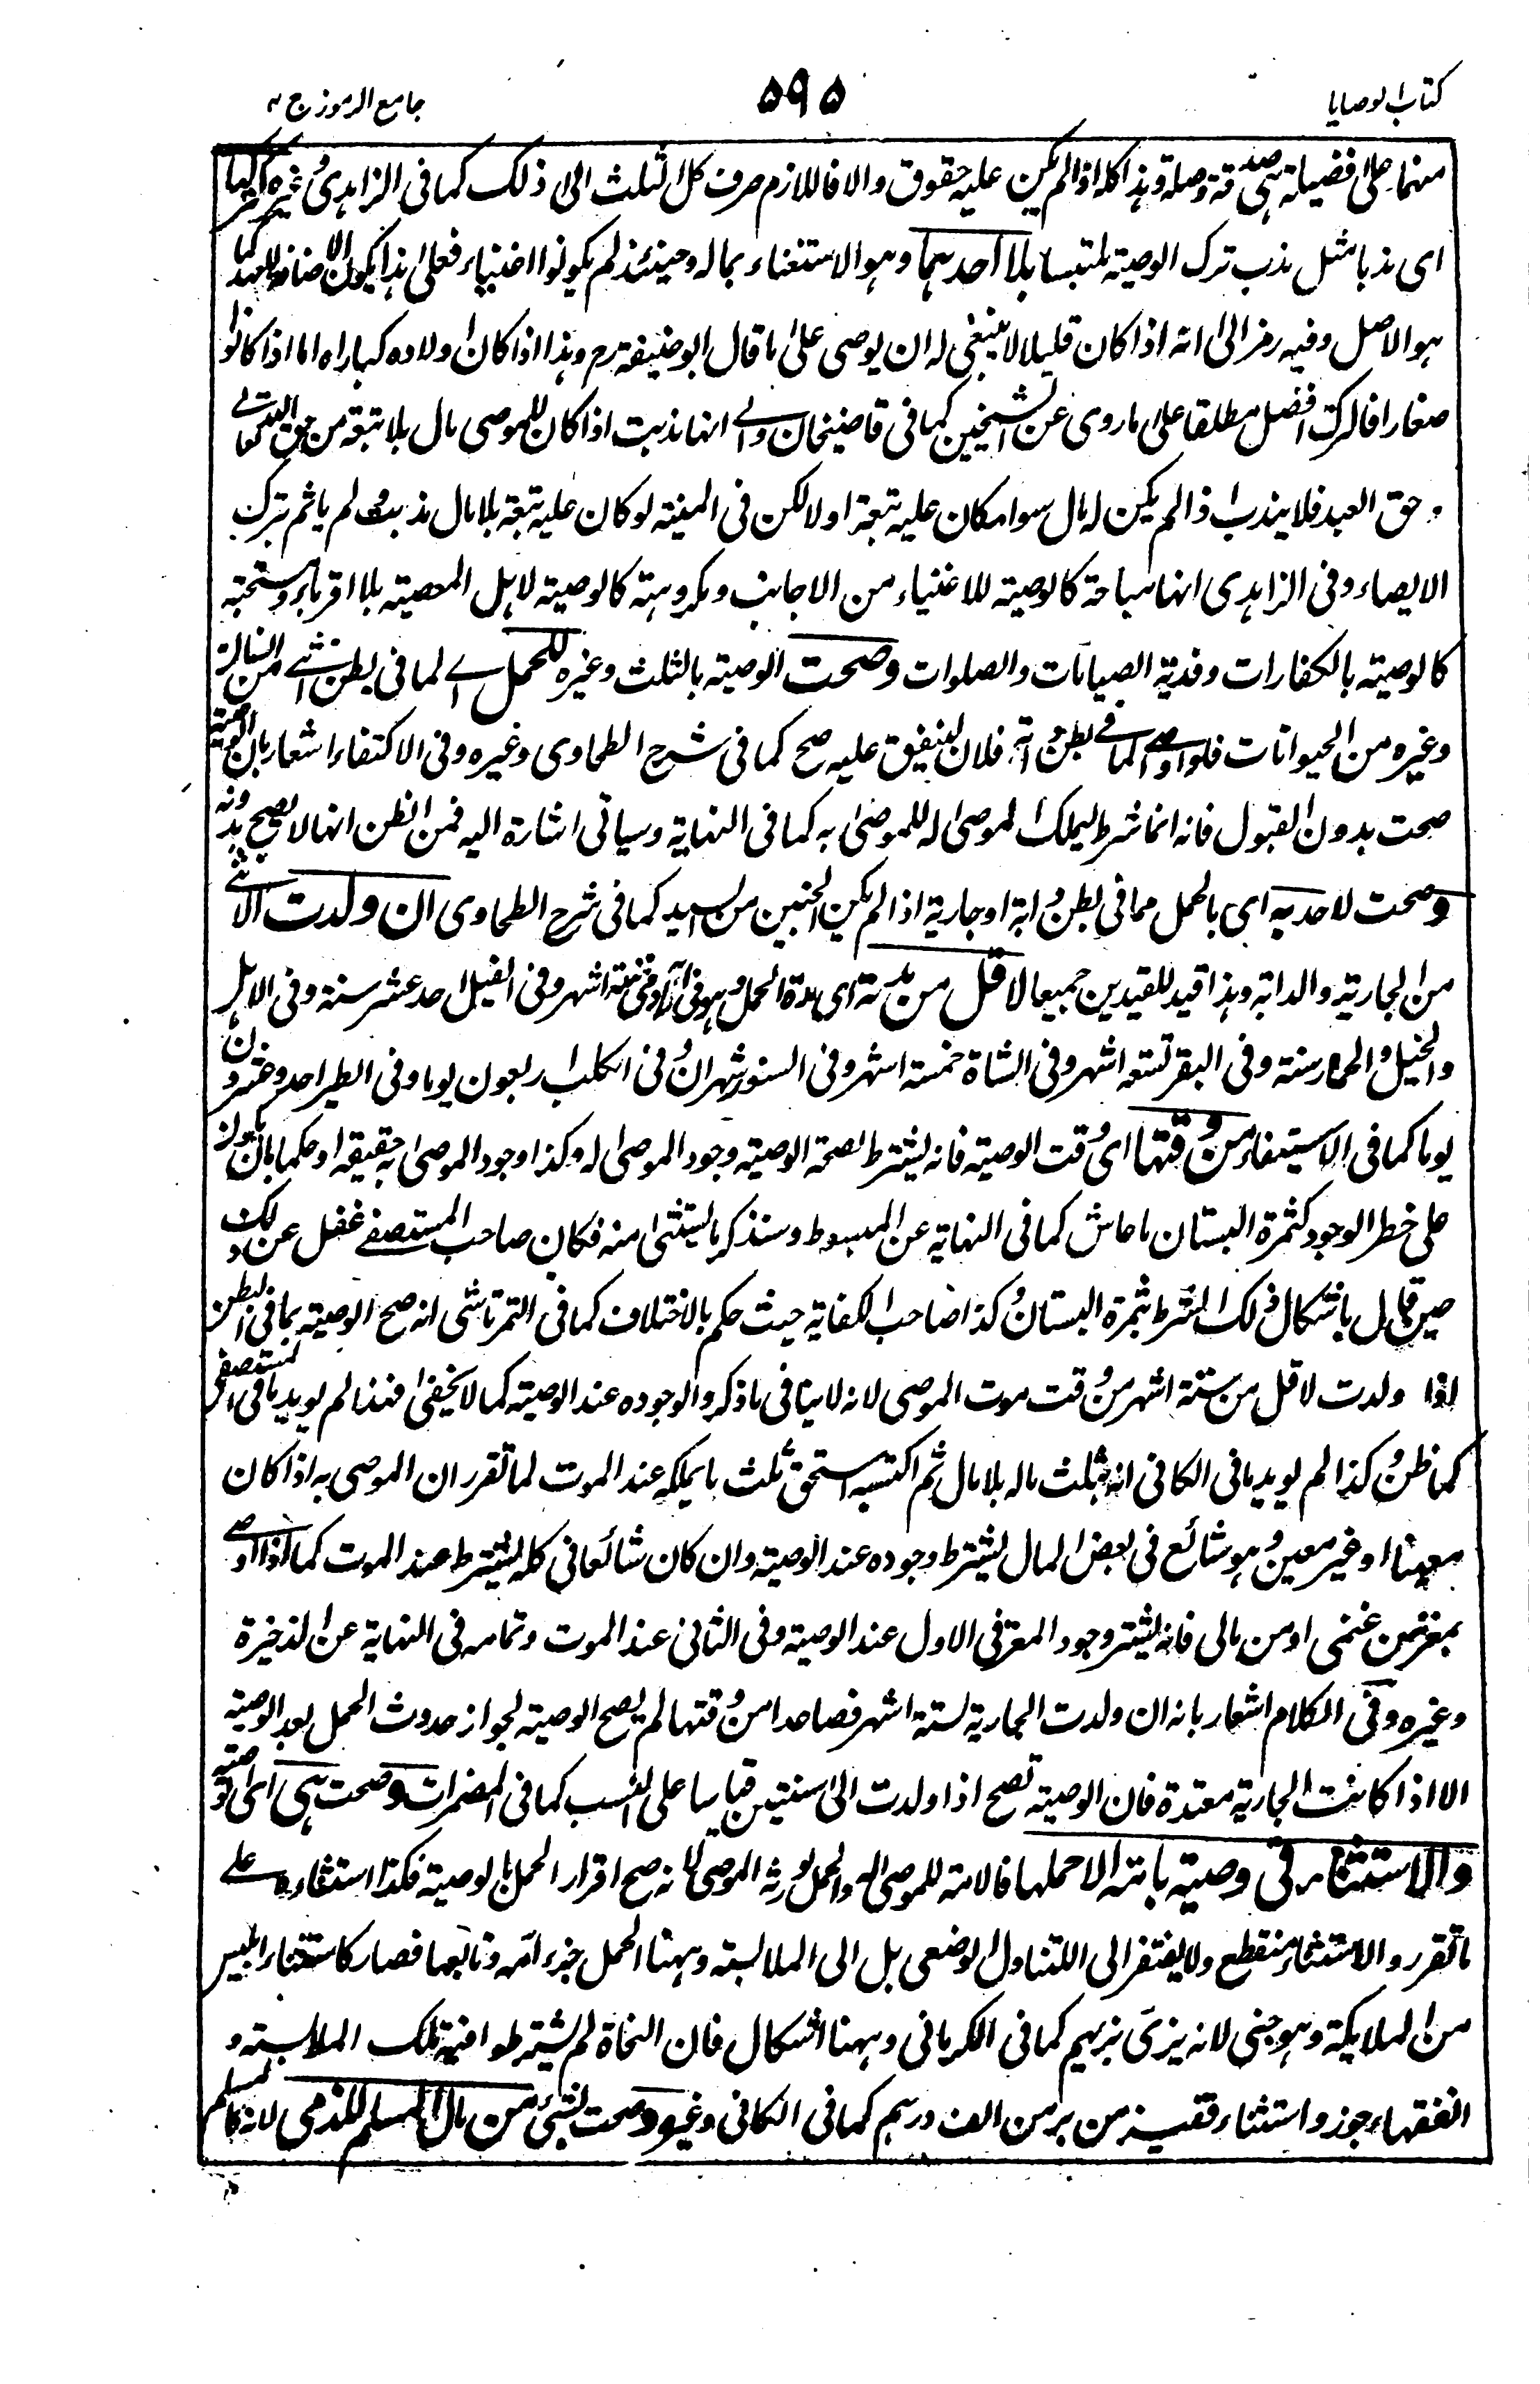 كتاب الوصايا ٥٩٥ جامع الرموز ج ٢
منهما على فضيلة هى صدقة وصلة وهذا كله اذا لم يكن عليه حقوق والا فاللازم صرف كل الثلث الى ذلك كما فى الزاهدى وغيره كتركها
اى ندبا مثل ندب ترك الوصية ملتبسا بلا احدهما وهو الاستغناء بماله وحينئذ لم يكونوا اغنياء فعلى هذا يكون الاضافة للعهد كما
هو الاصل وفيه رمز الى انه اذا كان قليلا لا ينبغى له ان يوصى على ما قال ابو حنيفة رح وهذا اذا كان اولاده كبارا اما اذا كانوا
صغارا فالترك افضل مطلقا على ما روى عن الشيخين كما فى قاضيخان والى انها ندبت اذا كان للموصى مال بلا تبعة من حق الله تعالى
وحق العبد فلا يندب اذا لم يكن له مال سواء كان عليه تبعة او لا لكن فى المنية لو كان عليه تبعة بلا مال ندبت ولم ياثم بترك
الايصاء وفى الزاهدى انها مباحة كالوصية للاغنياء من الاجانب ومكروهة كالوصية لاهل المعصية بلا اقرباء ومستحبة
كالوصية بالكفارات وفدية الصيامات والصلوات وصحت الوصية بالثلث وغيره للحمل اى لما فى بطن انثى من انسان
وغيره من الحيوانات فلو اوصى لما فى بطن دابة فلان لينفق عليه صح كما فى شرح الطحاوى وغيره وفى الاكتفاء اشعار بان الوصية
صحت بدون القبول فانه انما شرط ليملك الموصى له للموصى به كما فى النهاية وسياتى اشارة اليه فمن الظن انها لا يصح بدونه
وصحت لاحد به اى بالحمل مما فى بطن دابة او جارية اذا لم يكن الجنين من السيد كما فى شرح الطحاوى ان ولدت الانثى
من الجارية والدابة وهذا قيد للقيدين جميعا لاقل من مدته اى مدة الحمل وهو فى الآدمى ستة اشهر وفى الفيل احد عشر سنة وفى الابل
والخيل والحمار سنة وفى البقر تسعة اشهر وفى الشاة خمسة اشهر وفى السنور شهران وفى الكلب اربعون يوما وفى الطير احد وعشرون
يوما كما فى الاستيفاء من وقتها اى وقت الوصية فانه يشترط لصحة الوصية وجود الموصى له وكذا وجود الموصى به حقيقة او حكما بان يكون
على خطر الوجود كثمرة البستان ما عاش كما فى النهاية عن المبسوط وسنذكر ما يستثنى منه فكان صاحب المستصفى غفل عن ذلك
حين قابل باشكال ذلك الشرط بثمرة البستان وكذا صاحب الكفاية حيث حكم بالاختلاف كما فى التمرتاشى انه صح الوصية بما فى البطن
اذا ولدت لاقل من ستة اشهر من وقت موت الموصى لانه لا ينافى ما ذكروا لوجوده عند الوصية كما لا يخفى فهذا لم يويد ما فى المستصفى
كما ظن وكذا لم يويد ما فى الكافى انه بثلث ماله بلا مال ثم اكتسبه استحق ثلث ما يملكه عند الموت لما تقرر ان الموصى به اذا كان
معينا او غير معين وهو شائع فى بعض المال يشترط وجوده عند الوصية وان كان شائعا فى كله يشترط عند الموت كما اذا اوصى
بمعز من غنمى او من مالى فانه يشترط وجود المعز فى الاول عند الوصية وفى الثانى عند الموت وتمامه فى النهاية عن الذخيرة
وغيره وفى الكلام اشعار بانه ان ولدت الجارية لستة اشهر فصاعدا من وقتها لم يصح الوصية لجواز حدوث الحمل بعد الوصية
الا اذا كانت الجارية معتدة فان الوصية تصح اذا ولدت الى سنتين قياسا على النسب كما فى المضمرات وصحت هى اى الوصية
والاستثناء فى وصية بامته الا حملها فالامة للموصى له والحمل لورثة الموصى لانه صح اقرار الحمل بالوصية فكذا استثناءه على
ما تقرر والاستثناء منقطع ولا يفتقر الى التناول الوضعى بل الى الملابسة وههنا الحمل جزء امه وتابعها فصار كاستثناء ابليس
من الملايكة وهو جنى لانه يزى بزيهم كما فى الكرمانى وههنا اشكال فان النحاة لم يشترطوا فيه تلك الملابسة و
الفقهاء جوزوا استثناء قفيز من بر من الف درهم كما فى الكافى وغيره وصحت بشئ من مال المسلم للذمى لانه كالمسلم